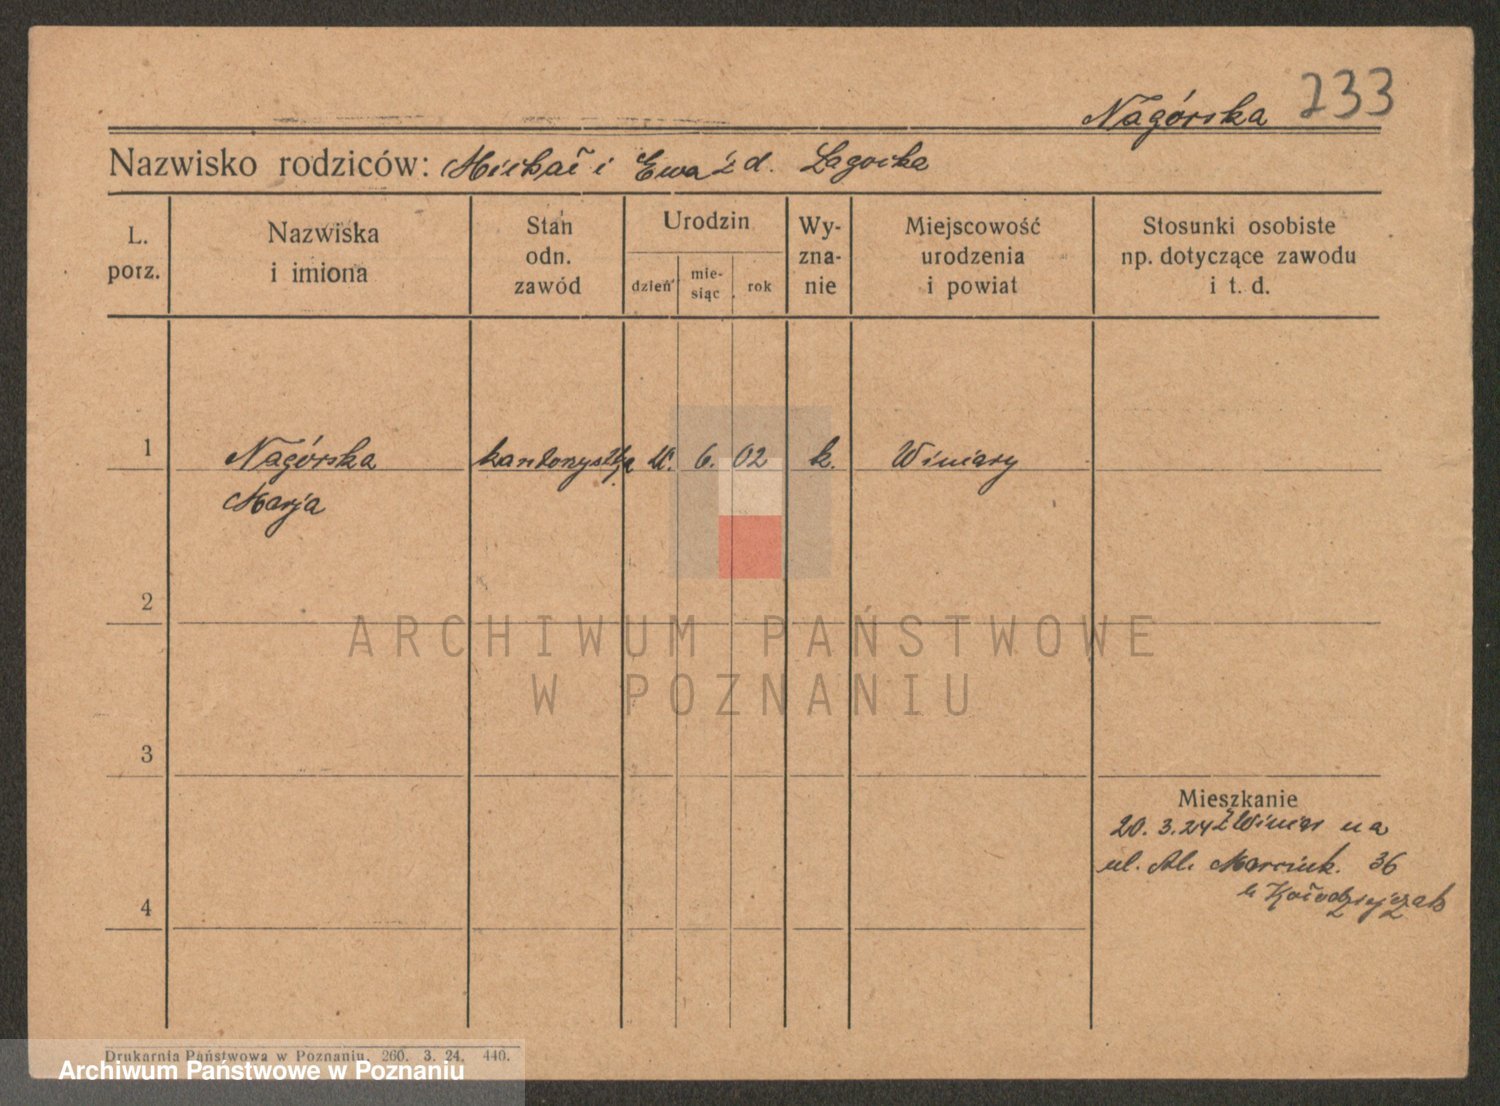 Nagórska 233
Nazwisko rodziców: Michał i Ewa z d. Łagocka
L. porz.
Nazwiska i imiona
Stan odn. zawód
Urodzin
dzień
mie-
siąc
rok
Wy-
zna-
nie
Miejscowość
urodzenia
i powiat
Stosunki osobiste
np. dotyczące zawodu
i t. d.
1 Nagórska kantorzystka 6. 02 k. Winiary
Marja
2
ARCHIWUM PAŃSTWOWE
W POZNANIU
3
Mieszkanie
20. 3. 24 z Winiar na
ul. Al. Marcink. 36
4
Kołodziejczak
Drukarnia Państwowa w Poznaniu. 260. 3. 24. 440.
Archiwum Państwowe w Poznaniu